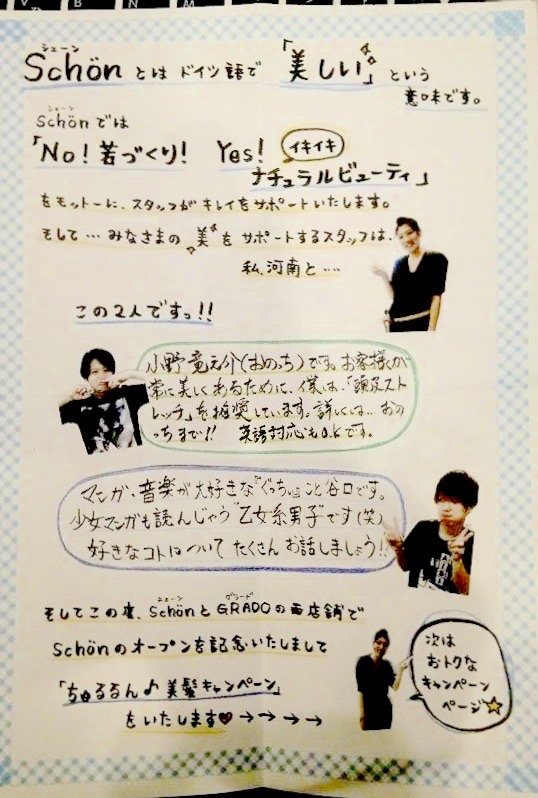 シェーン
Schönとはドイツ語で「美しい」という
意味です。
シェーン
Schönでは
「No!若づくり! Yes! イキイキ
ナチュラルビューティ」
をモットーに、スタッフがキレイをサポートいたします。
そして…みなさまの"美"をサポートするスタッフは、
私、河南と……
この2人ですっ!!
小野 竜之介(おのっち)です。お客様が
常に美しくあるために、僕は、「頭足スト
レッチ」を推奨しています。詳しくは…おの
っちまで!! 英語対応もO.Kです。
マンガ、音楽が大好きな『ぐっちぃ』こと谷口です。
少女マンガも読んじゃう"乙女系男子"です(笑)
好きなコトについてたくさんお話しましょう!!
シェーン グラード
そしてこの度、SchönとGRADOの両店舗で
Schönのオープンを記念いたしまして
「ちゅるるん♪美髪キャンペーン」
をいたします♥→→→→
次は
おトクな
キャンペーン
ページ☆